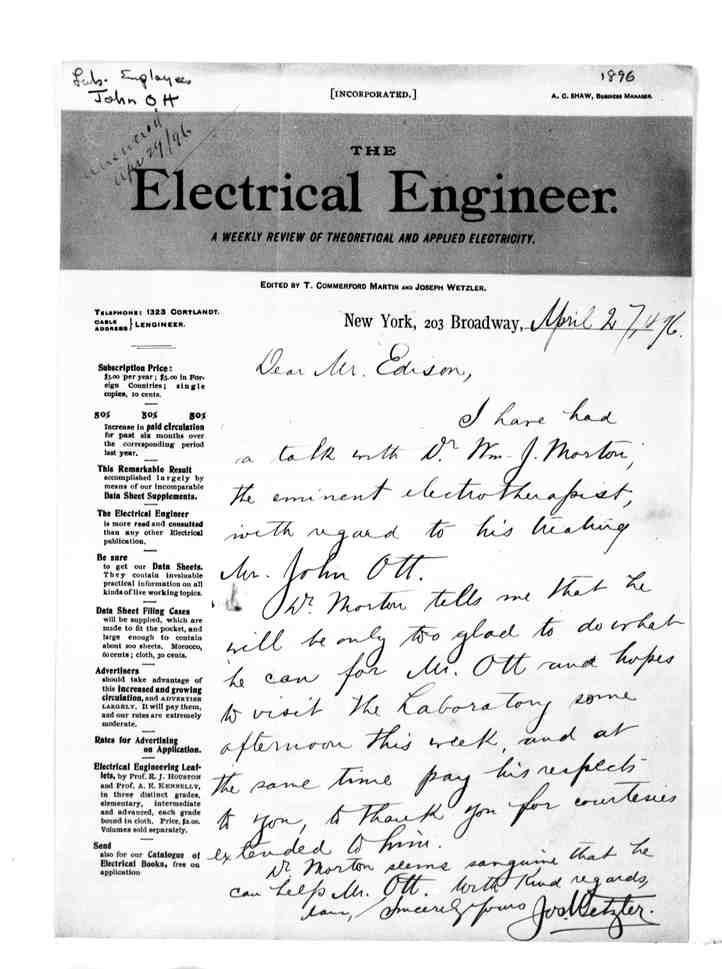 Lab. Employees
John Ott
1896
[INCORPORATED.]
A. C. SHAW, BUSINESS MANAGER.
answered
Apr 29/96
THE
Electrical Engineer.
A WEEKLY REVIEW OF THEORETICAL AND APPLIED ELECTRICITY.
EDITED BY T. COMMERFORD MARTIN AND JOSEPH WETZLER.
TELEPHONE: 1323 CORTLANDT.
CABLE ADDRESS } LENGINEER.
New York, 203 Broadway, April 27, 1896.
Subscription Price:
$3.00 per year; $5.00 in For-
eign Countries; single
copies, 10 cents.
50% 50% 50%
Increase in paid circulation
for past six months over
the corresponding period
last year.
This Remarkable Result
accomplished largely by
means of our incomparable
Data Sheet Supplements.
The Electrical Engineer
is more read and consulted
than any other Electrical
publication.
Be sure
to get our Data Sheets.
They contain invaluable
practical information on all
kinds of live working topics.
Data Sheet Filing Cases
will be supplied, which are
made to fit the pocket, and
large enough to contain
about 100 sheets. Morocco,
60 cents; cloth, 30 cents.
Advertisers
should take advantage of
this increased and growing
circulation, and ADVERTISE
LARGELY. It will pay them,
and our rates are extremely
moderate.
Rates for Advertising
on Application.
Electrical Engineering Leaf-
lets, by Prof. E. J. HOUSTON
and Prof. A. E. KENNELLY,
in three distinct grades,
elementary, intermediate
and advanced, each grade
bound in cloth. Price, $2.00.
Volumes sold separately.
Send
also for our Catalogue of
Electrical Books, free on
application
Dear Mr. Edison,
I have had
a talk with Dr Wm. J. Morton,
the eminent electrotherapist,
with regard to his treating
Mr. John Ott.
Dr Morton tells me that he
will be only too glad to do what
he can for Mr. Ott and hopes
to visit the Laboratory some
afternoon this week, and at
the same time pay his respects
to you, to thank you for courtesies
extended to him.
Dr Morton seems sanguine that he
can help Mr. Ott. With kind regards,
I am, Sincerely yours Jos Wetzler.